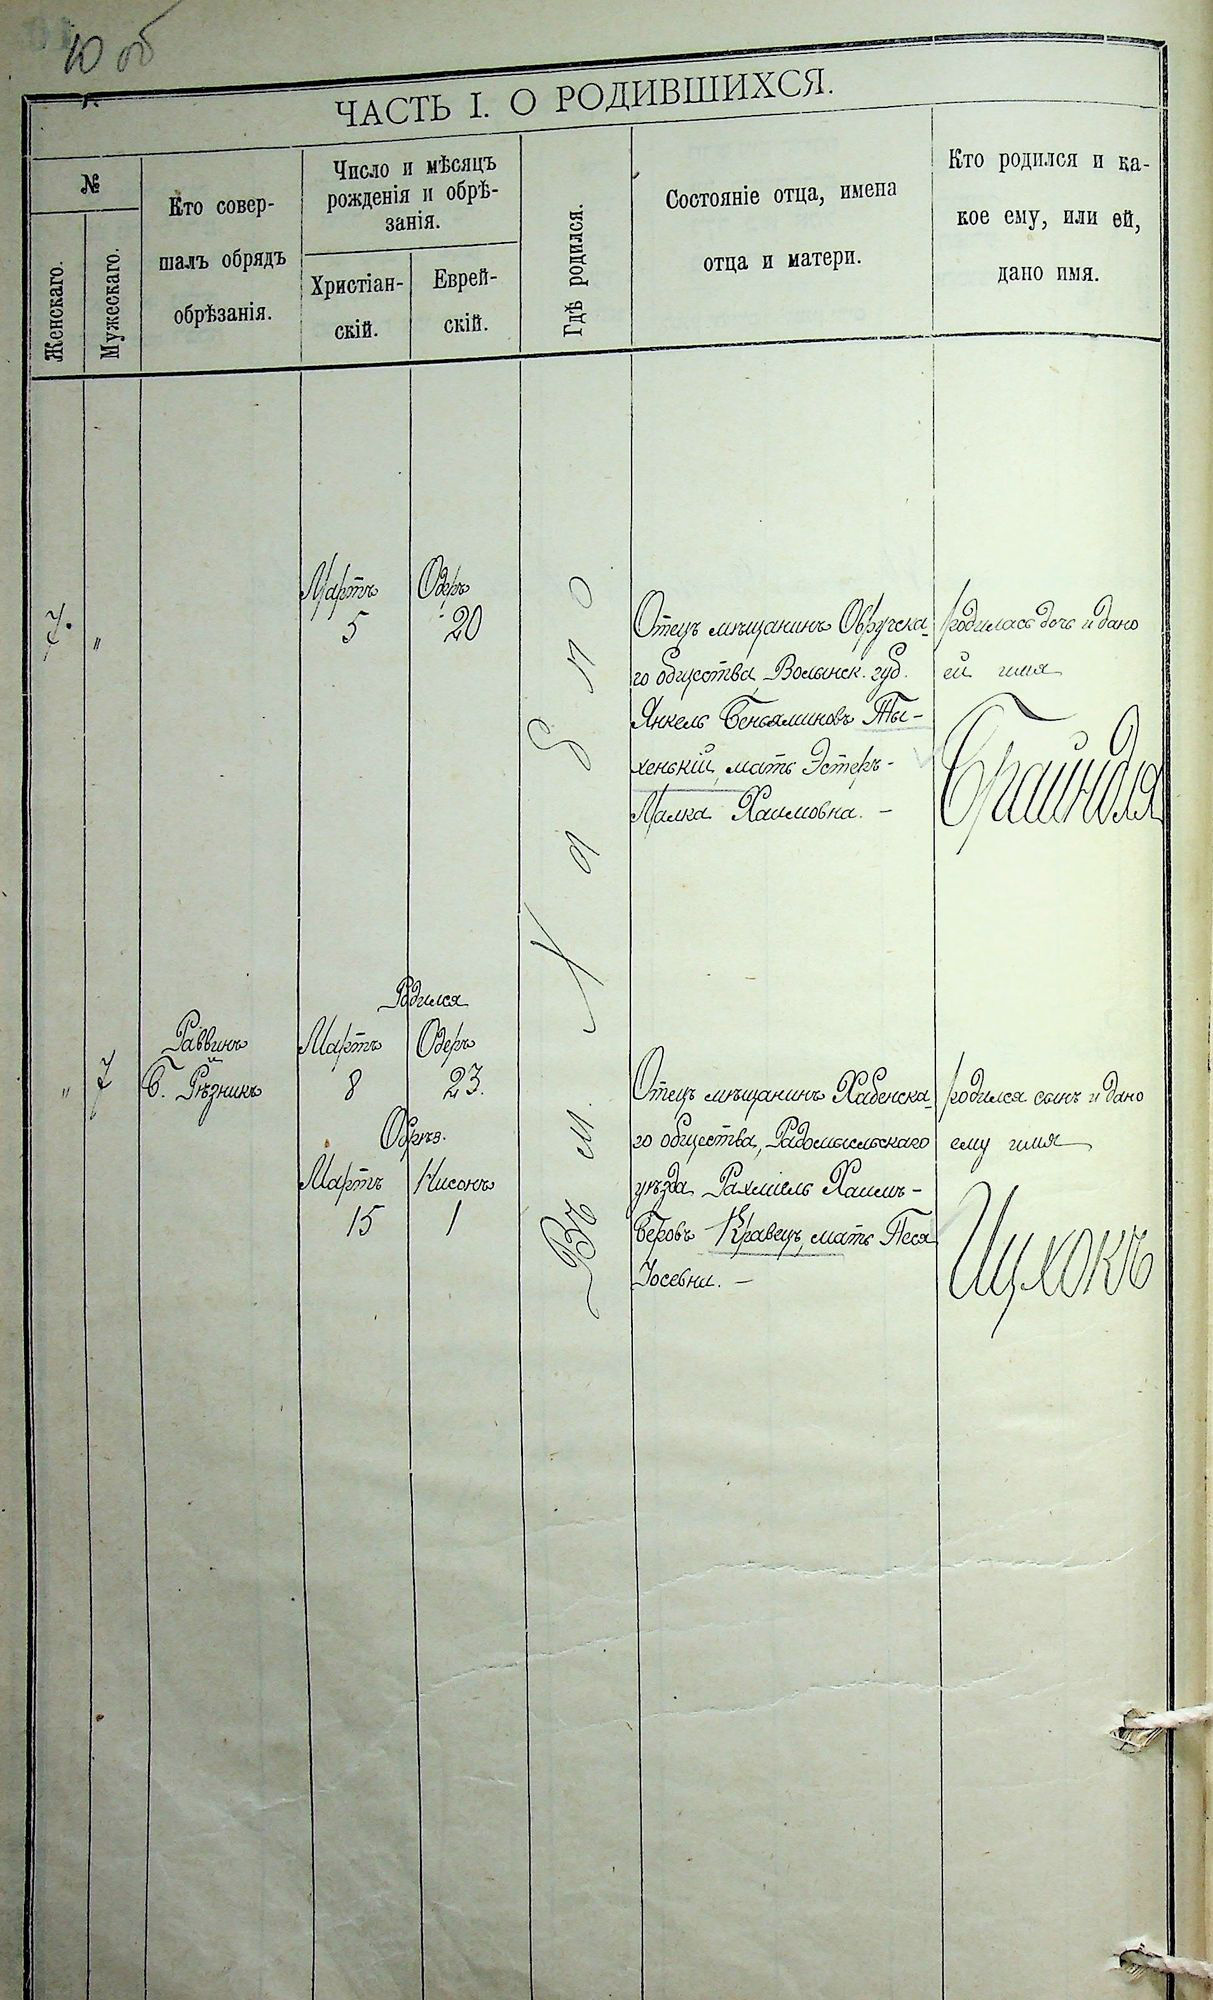 10 об
ЧАСТЬ I. О РОДИВШИХСЯ.
№
Женскаго.
Мужескаго.
Кто совер-
шалъ обрядъ
обрѣзанія.
Число и мѣсяцъ
рожденія и обрѣ-
занія.
Христіан-
скій.
Еврей-
скій.
Гдѣ родился.
Состояніе отца, имена
отца и матери.
Кто родился и ка-
кое ему, или ей,
дано имя.
Въ м. Хабно
7. "
Мартъ
5
Одеръ
20
Отецъ мѣщанинъ Овручска-
го общества, Волынск. губ.
Янкель Беньяминовъ Ты-
хенькій, мать Эстеръ-
Малка Хаимовна. –
родилась дочь и дано
ей имя
Брайндля
" 7
Раввинъ
Б. Рѣзникъ
Родился
Мартъ Одеръ
8 23.
Обрѣз.
Мартъ Нисонъ
15 1
Отецъ мѣщанинъ Хабенска-
го общества, Радомысльскаго
уѣзда Рахміель Хаимъ-
Беровъ Кравецъ, мать Песя
Іосевна. –
родился сынъ и дано
ему имя
Ицхокъ